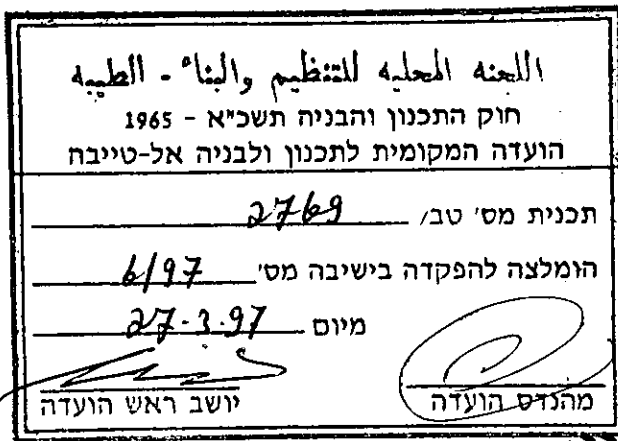 اللجنه المحليه للتنظيم والبناء - الطيبه
חוק התכנון והבניה תשכ"א - 1965
הועדה המקומית לתכנון ולבניה אל-טייבח
תכנית מס' טב/ 2769
הומלצה להפקדה בישיבה מס' 6/97
מיום 27.3.97
מהנדס הועדה יושב ראש הועדה